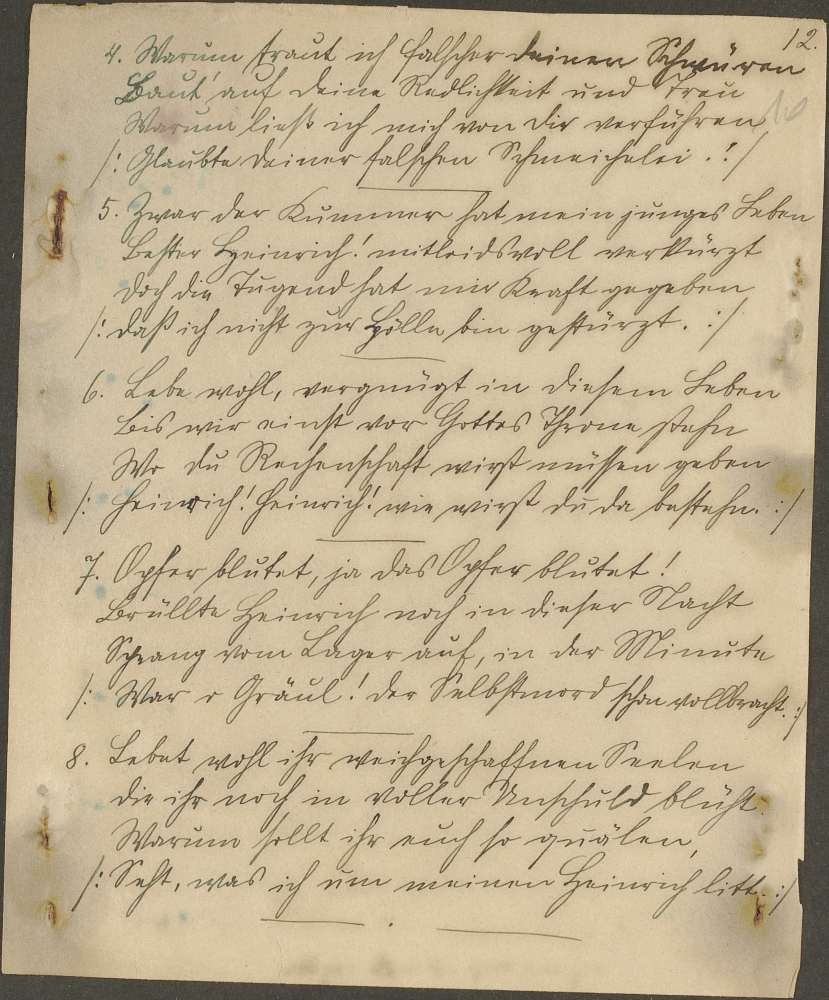 12.
4. Warum traut ich falscher deinen Schwüren
Baut' auf deine Redlichkeit und Treu
10
Warum ließ ich mich von dir verführen,
/: Glaubte deiner falschen Schmeichelei. :/
5. Zwar der Kummer hat mein junges Leben
Bester Heinrich! mitleidsvoll verkürzt
Doch die Tugend hat mir Kraft gegeben
/: daß ich nicht zur Hölle bin gestürzt. :/
6. Lebe wohl, vergnügt in diesem Leben
Bis wir einst vor Gottes Throne stehn
Wo du Rechenschaft wirst müssen geben
/: Heinrich! Heinrich! wie wirst du da bestehn. :/
7. Opfer blutet, ja das Opfer blutet!
Brüllte Heinrich noch in dieser Nacht
Sprang vom Lager auf, in der Minute
/: War o Gräul! der Selbstmord schon vollbracht. :/
8. Lebet wohl ihr weichgeschaffnen Seelen
die ihr noch in voller Unschuld blüht.
Warum sollt ihr euch so quälen,
/: Seht, was ich um meinen Heinrich litt. :/